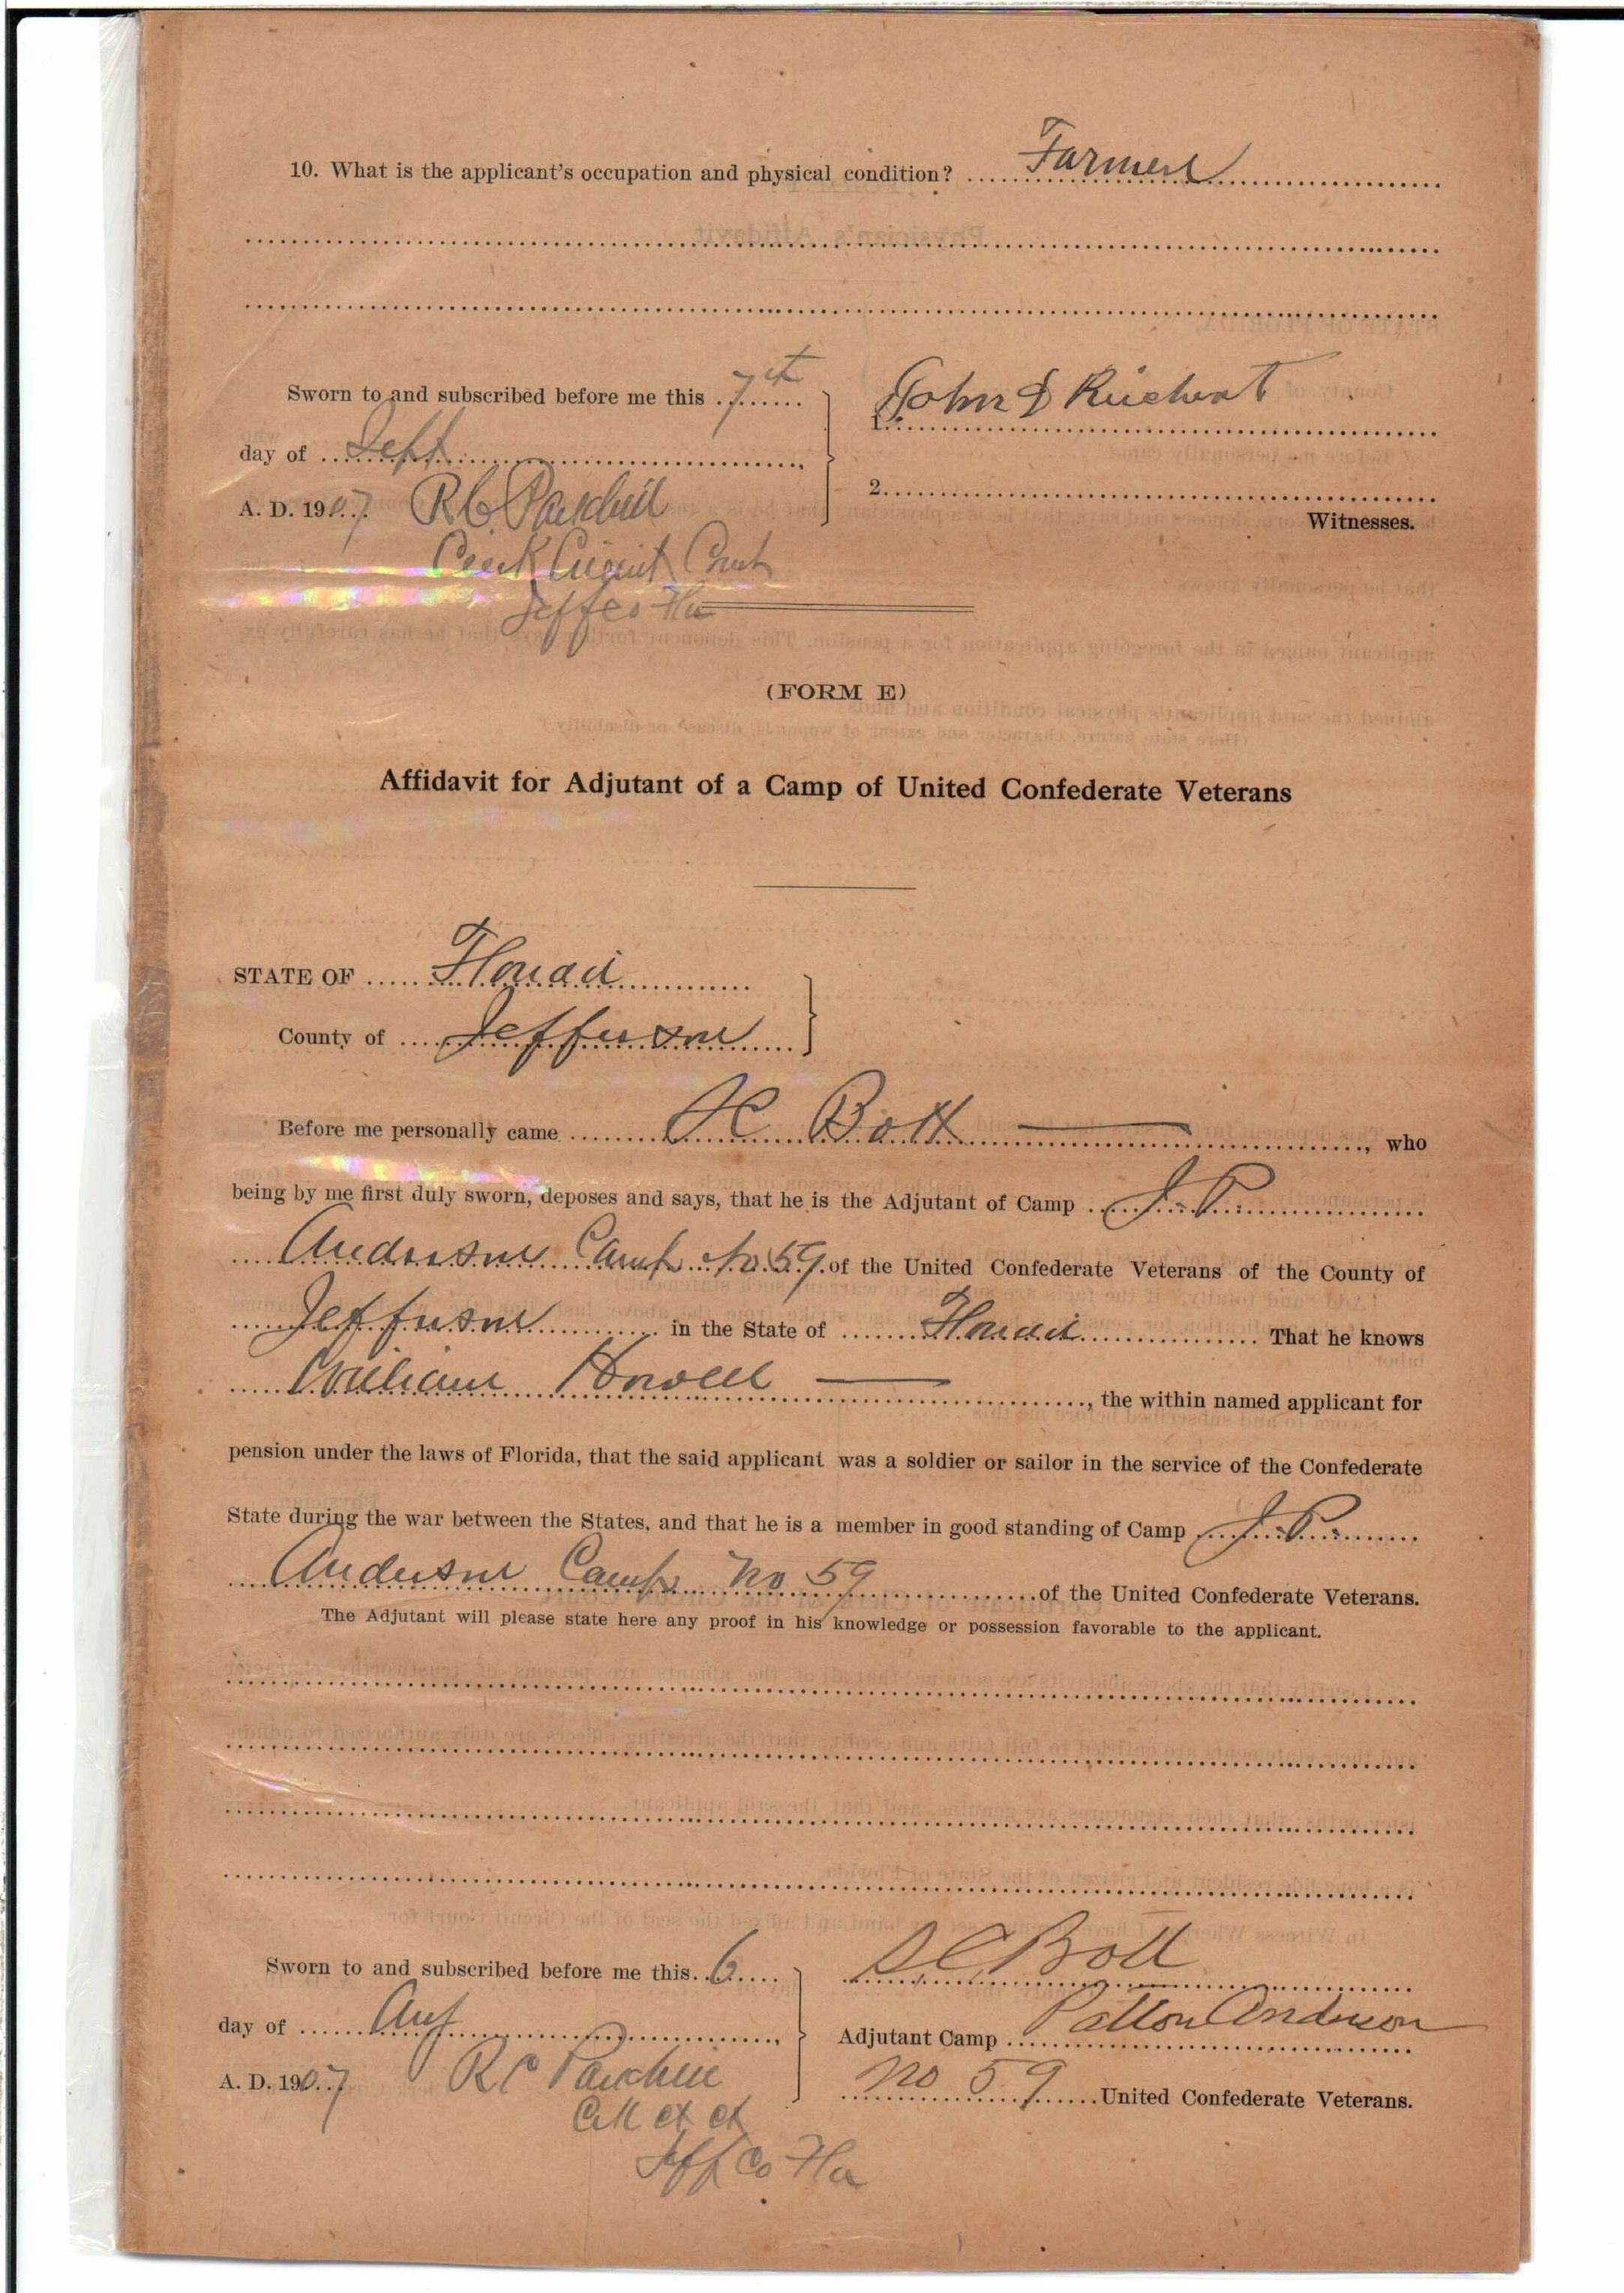 10. What is the applicant's occupation and physical condition? Farmer
Sworn to and subscribed before me this 7th
day of Sept
A. D. 1907. R C
Clerk Circuit Court
Jeff Co Fla
1. John D
2.
Witnesses.
(FORM E)
Affidavit for Adjutant of a Camp of United Confederate Veterans
STATE OF Florida
County of Jefferson
Before me personally came Bott, who
being by me first duly sworn, deposes and says, that he is the Adjutant of Camp J. P.
Anderson Camp No. 59 of the United Confederate Veterans of the County of
Jefferson in the State of Florida. That he knows
William Howell, the within named applicant for
pension under the laws of Florida, that the said applicant was a soldier or sailor in the service of the Confederate
State during the war between the States, and that he is a member in good standing of Camp J. P.
Anderson Camp No 59 of the United Confederate Veterans.
The Adjutant will please state here any proof in his knowledge or possession favorable to the applicant.
Sworn to and subscribed before me this 6
day of Aug
A. D. 1907 R C
Clk Ct Ct
Jeff Co Fla
Bott
Adjutant Camp Patton Anderson
No 59 United Confederate Veterans.